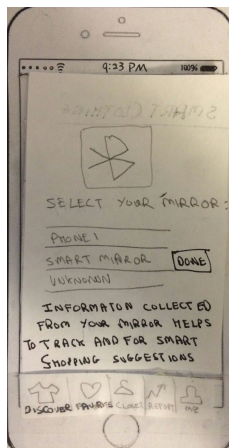 9:23 PM 100%
SMART CLOTHING
SELECT YOUR MIRROR:
PHONE 1
SMART MIRROR DONE
UNKNOWN
INFORMATON COLLECTED
FROM YOUR MIRROR HELPS
TO TRACK AND FOR SMART
SHOPPING SUGGESTIONS
DISCOVER FAVORITS CLOSET REPORT ME